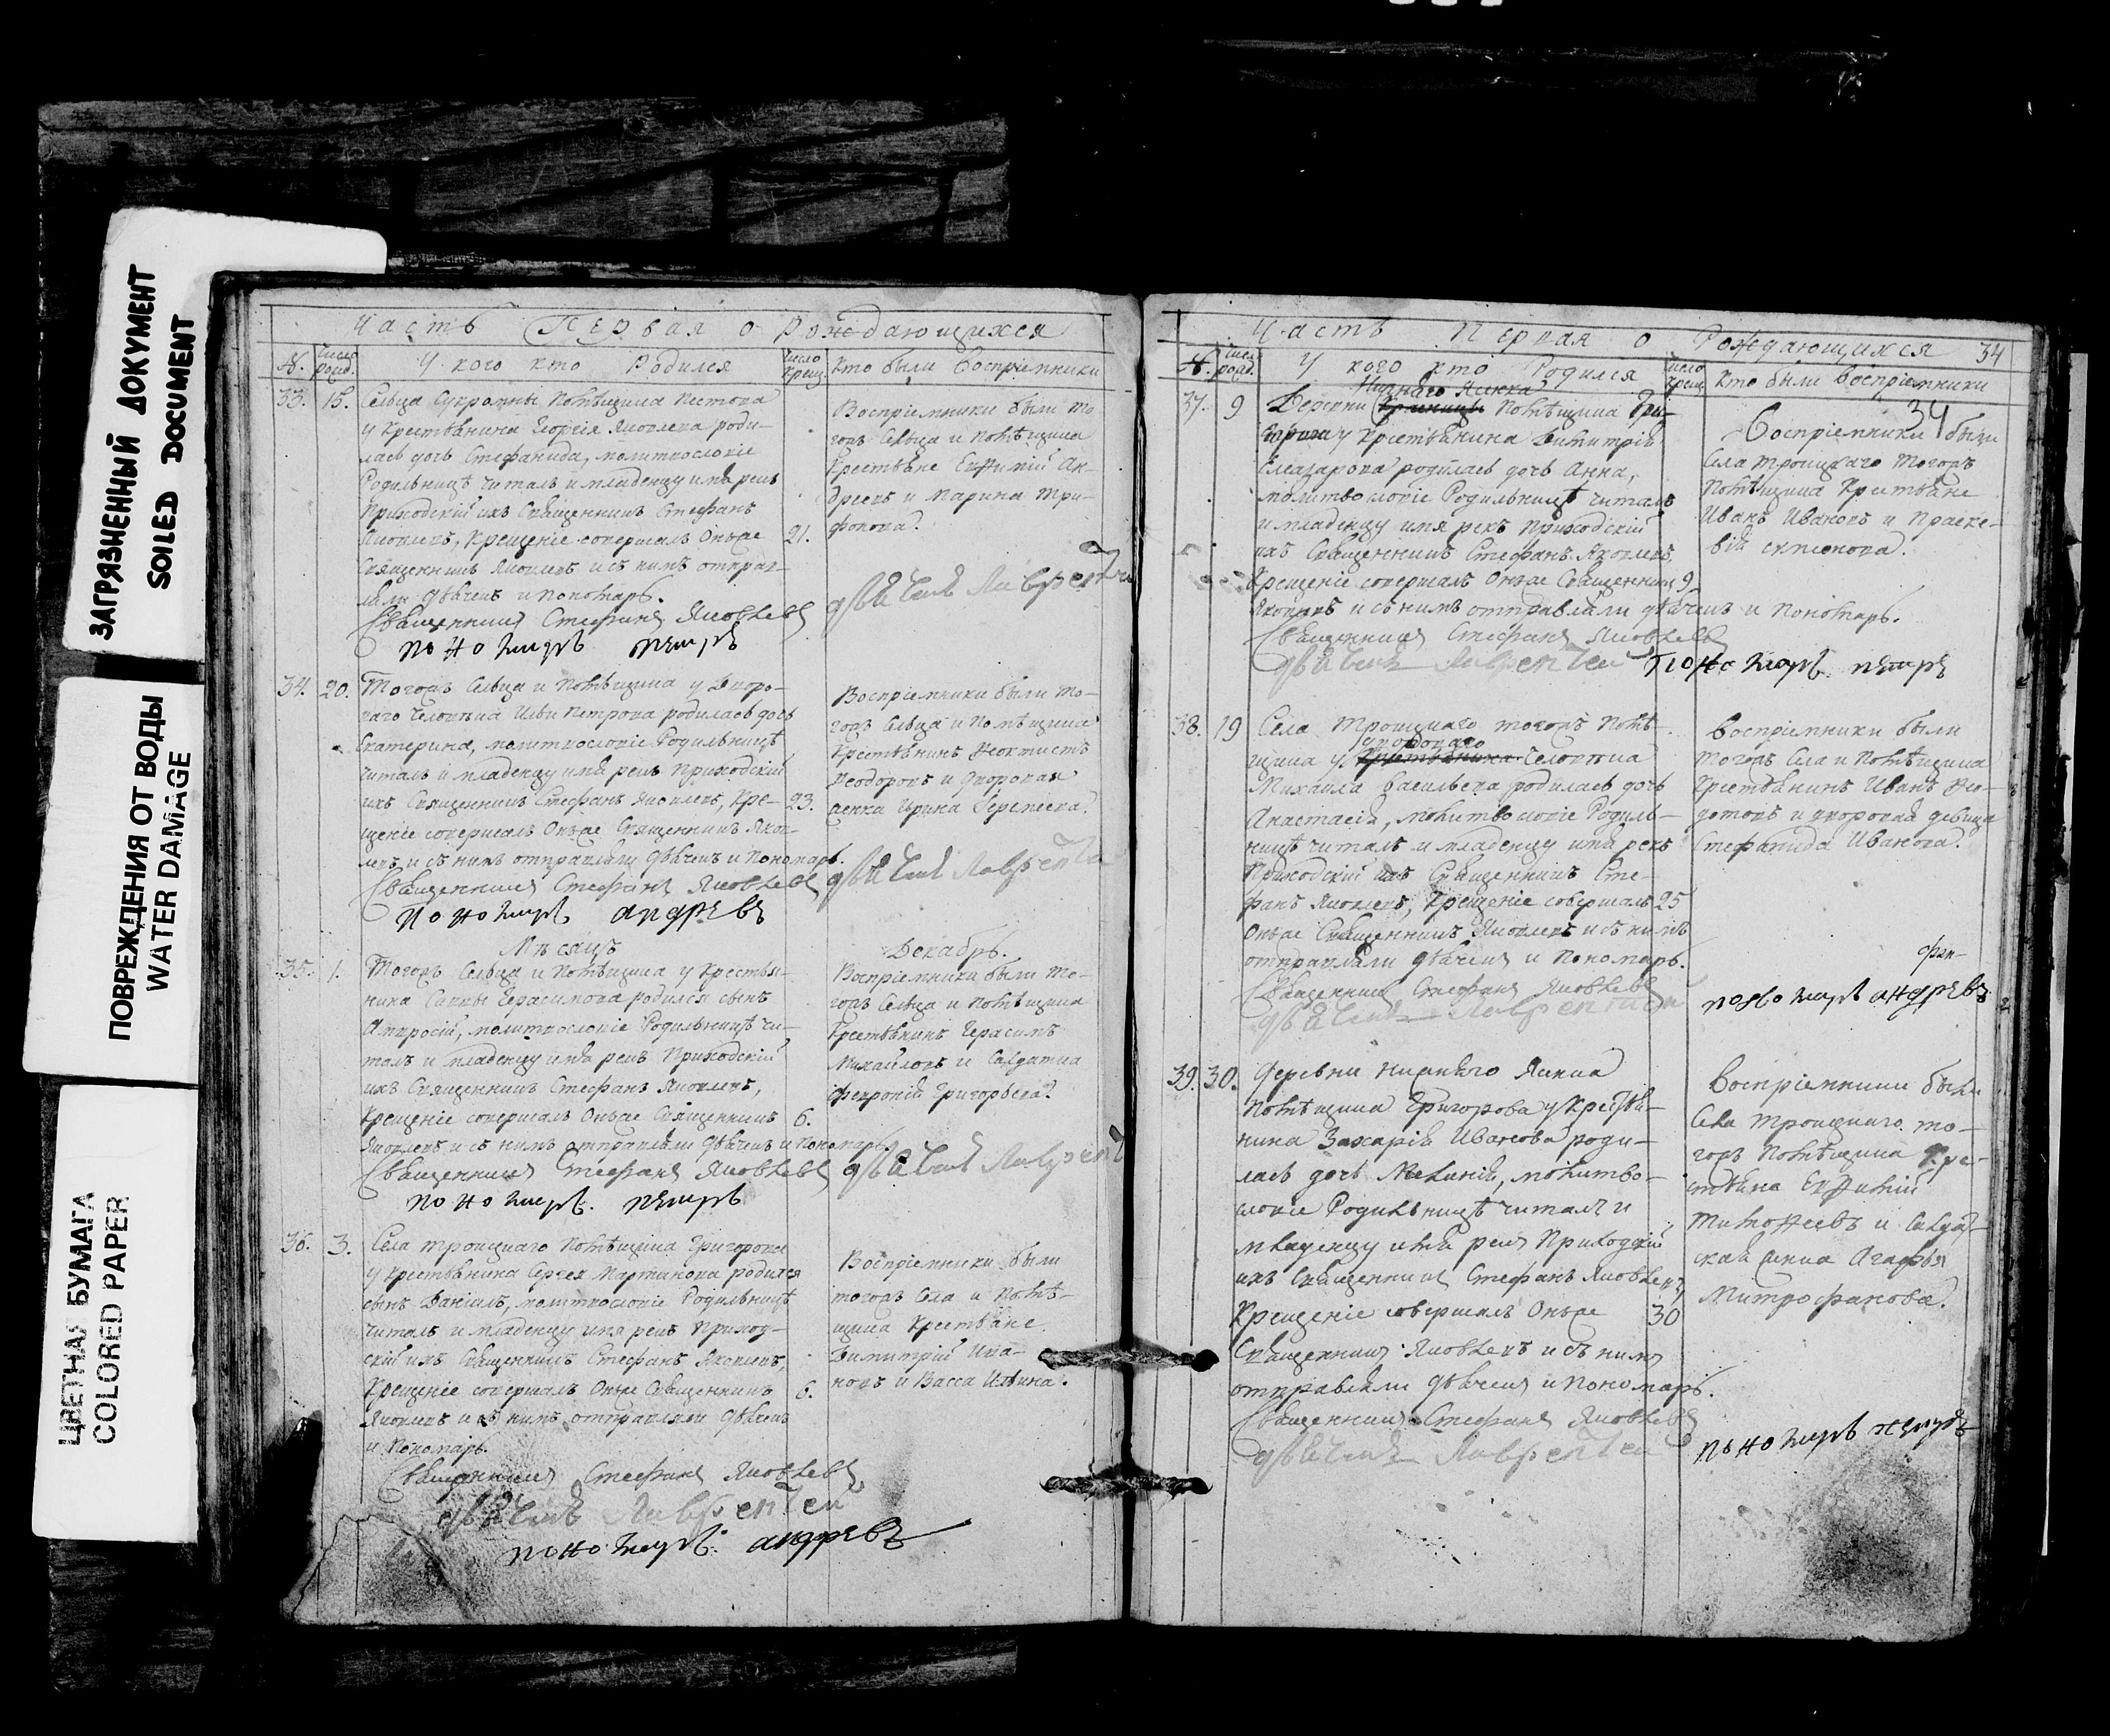 ЗАГРЯЗНЕННЫЙ ДОКУМЕНТ
SOILED DOCUMENT
ПОВРЕЖДЕНИЯ ОТ ВОДЫ
WATER DAMAGE
ЦВЕТНАЯ БУМАГА
COLORED PAPER
Часть Первая о Рождающихся
№. Число рожд. У кого кто Родился Число крещ. Кто были Восприемники
33. 15. Сельца Сукромны Помѣщика Пестова
у Крестьянина Георгия Яковлева роди-
лась дочь Стефанида, молитвословіе
Родильницѣ читалъ и младенцу имя рекъ
Приходскій ихъ Священникъ Стефанъ
Яковлевъ, Крещеніе совершалъ Онъже 21.
Священникъ Яковлевъ и съ нимъ отправ-
ляли дьячекъ и Пономарь.
Священникъ Стефанъ Яковлевъ
пономарь петръ
Восприемники были то
гожъ Сельца и помѣщика
Крестьяне Евфимій Ан-
дреевъ и Марина Три-
фонова.
дьячекъ Лаврентий
34. 20. Тогожъ Сельца и Помѣщика у Дворо-
ваго Человѣка Ильи Петрова родилась дочь
Екатерина, молитвословіе Родильницѣ
читалъ и младенцу имя рекъ Приходскій
ихъ Священникъ Стефанъ Яковлевъ, Кре- 23.
щеніе совершалъ Онъже Священникъ Яков-
левъ, и съ нимъ отправляли дьячекъ и Пономарь.
Священникъ Стефанъ Яковлевъ
пономарь андрѣвъ
Восприемники были то-
гожъ Сельца и Помѣщика
Крестьянинъ Феоктистъ
Феодоровъ и дворовая
девка Ирина
дьячекъ Лаврентий
Мѣсяцъ Декабрь.
35. 1. Тогожъ Сельца и Помѣщика у Крестья-
нина Саввы Герасимова родился сынъ
Амвросій, молитвословіе Родильницѣ чи-
талъ и младенцу имя рекъ Приходскій
ихъ Священникъ Стефанъ Яковлевъ,
Крещеніе совершалъ Онъже Священникъ 6.
Яковлевъ и съ нимъ отправляли дьячекъ и Пономарь.
Священникъ Стефанъ Яковлевъ
пономарь. петръ
Восприемники были то-
гожъ Сельца и Помѣщика
Крестьянинъ Герасимъ
Михайловъ и Салдатка
Феврония Григорьева.
дьячекъ Лаврентий
36. 3. Села Троицкаго Помѣщика Григорова
у Крестьянина Сергея Мартинова родился
сынъ Даніилъ, молитвословіе Родильницѣ
читалъ и младенцу имя рекъ Приход-
скій ихъ Священникъ Стефанъ Яковлевъ,
Крещеніе совершалъ Онъже Священникъ 6.
Яковлевъ и съ нимъ отправляли дьячекъ
и Пономарь.
Священникъ Стефанъ Яковлевъ
дьячекъ Лаврентей
пономарь. андрѣвъ
Восприемники были
тогожъ Села и Помѣ-
щика Крестьяне
Димитрій Ива-
новъ и Васса Ильина.
Часть Первая о Рождающихся 34
№. Число рожд. У кого кто Родился Число крещ. Кто были Восприемники
34
37. 9 Деревни Нижняго Ясенка Помѣщика Гри-
горова у Крестьянина Димитрія
Елазарова родилась дочь Анна,
молитвословіе Родильницѣ читалъ
и младенцу имя рекъ Приходскій
ихъ Священникъ Стефанъ Яковлевъ
Крещеніе совершалъ Онъже Священникъ 9
Яковлевъ и съ нимъ отправляли дьячекъ и Пономарь.
Священникъ Стефанъ Яковлевъ
дьячекъ Лаврентей пономарь. петръ
Восприемники были
Села Троицкаго тогожъ
Помѣщика Крестьяне
Иванъ Ивановъ и Праске-
вія
38. 19 Села Троицкаго тогожъ Помѣ-
щика у дворового Человѣка
Михаила Васильева родилась дочь
Анастасія, молитвословіе Родиль-
ницѣ читалъ и младенцу имя рекъ
Приходскій ихъ Священникъ Сте-
фанъ Яковлевъ, Крещеніе совершалъ 25
Онъже Священникъ Яковлевъ и съ нимъ
отправляли дьячекъ и Пономарь.
Священникъ Стефанъ Яковлевъ
дьячекъ Лаврентий
пономарь андрѣвъ
Восприемники были
тогожъ Села и Помѣщика
Крестьянинъ Иванъ Фео-
дотовъ и дворовая девица
Стефанида Иванова.
39. 30. Деревни нижняго Ясенка
Помѣщика Григорова у Крестья-
нина Захарія Иванова роди-
лась дочь Меланія, молитво-
словіе Родильницѣ читалъ и
младенцу имя рекъ Приходскій
ихъ Священникъ Стефанъ Яковлевъ,
Крещеніе совершалъ Онъже 30
Священникъ Яковлевъ и съ нимъ
отправляли дьячекъ и Пономарь.
Священникъ Стефанъ Яковлевъ
дьячекъ Лаврентей
пономарь петръ
Восприемники были
Села Троицкаго то-
гожъ Помѣщика Кре-
стьяне Евфимій
Тимофеевъ и Салдат-
ская женка Агафья
Митрофанова.